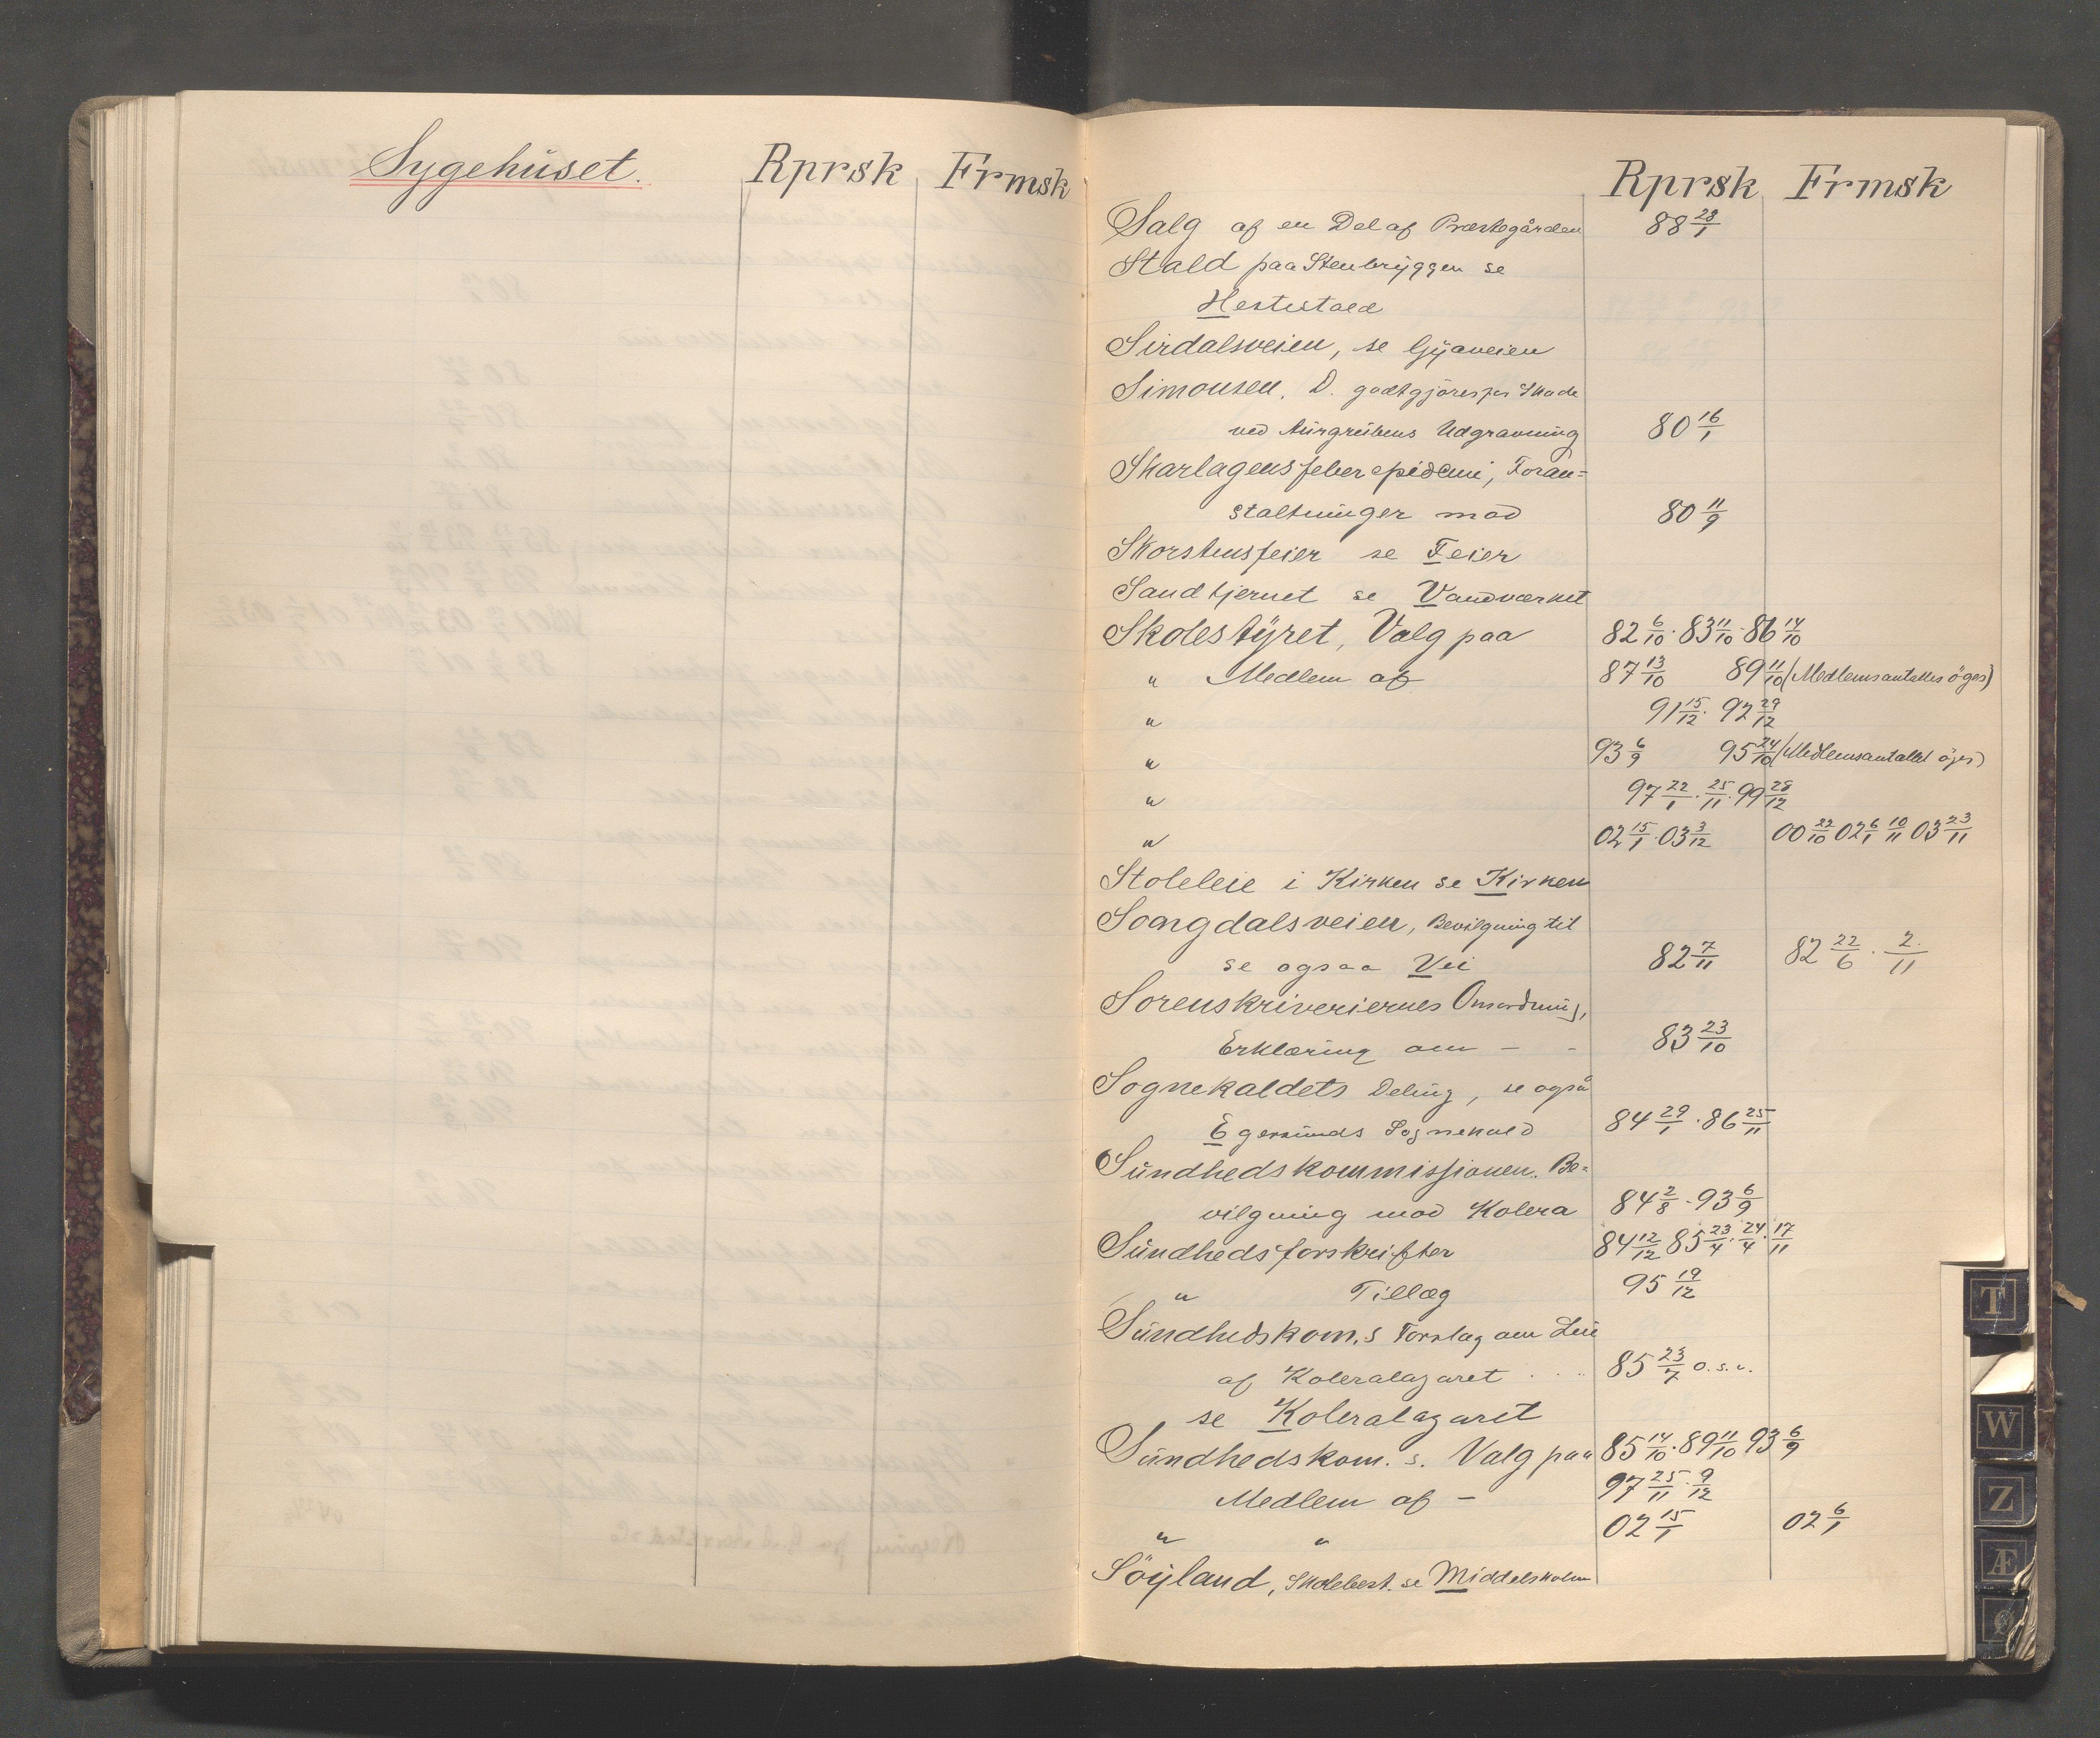 Sygehüset. Rprsk Frmsk
Rprsk Frmsk
Salg af en Del af Præstegården 88 28/1
Stald paa Stenbryggen se
Hestestald
Sirdalsveien, se Gyaveien
Simonsen, D. godtgjöres for Skade
ved Aürgrübens Udgravning 80 16/1
Skarlagensfeberepidemi, Foran=
staltninger mod 80 11/9
Skorstensfeier se Feier
Sandtjernet se Vandværket
Skolestÿret, Valg paa 82 6/10 · 83 11/10 · 86 14/10
" Medlem af 87 13/10 89 11/10 (Medlemsantallet öges)
" 91 15/12 · 92 29/12
" 93 6/9 95 24/10 (Medlemsantallet öges)
" 97 22/1 · 25/11 · 99 28/12
" 02 15/1 · 03 3/12 00 22/10 02 6/1 10/11 03 23/11
Stoleleie i Kirken se Kirken
Soangdalsveien, Bevilgning til
se ogsaa Vei 82 7/11 82 22/6 · 2/11
Sorenskriveriernes Omordning,
Erklæring om - - 83 23/10
Sognekaldets Deling, se også
Egersunds Sognekald 84 29/1 · 86 25/11
Sündhedskommissjonen. Be=
vilgning mod Kolera 84 2/8 · 93 6/9
Sündhedsforskrifter 84 12/12 85 23/4 · 24/4 · 17/11
" Tillæg 95 19/12
Sündhedskom.s Forslag om Leie
af Koleralazaret . . . 85 23/7 o.s.v.
se Koleralazaret
Sündhedskom. s. Valg paa 85 14/10 · 89 11/10 93 6/9
Medlem af - 97 25/11 · 9/12
" " 02 15/1 02 6/1
Söÿland, Skolebest. se Middelskolen
T
W
Z
Æ
Ø